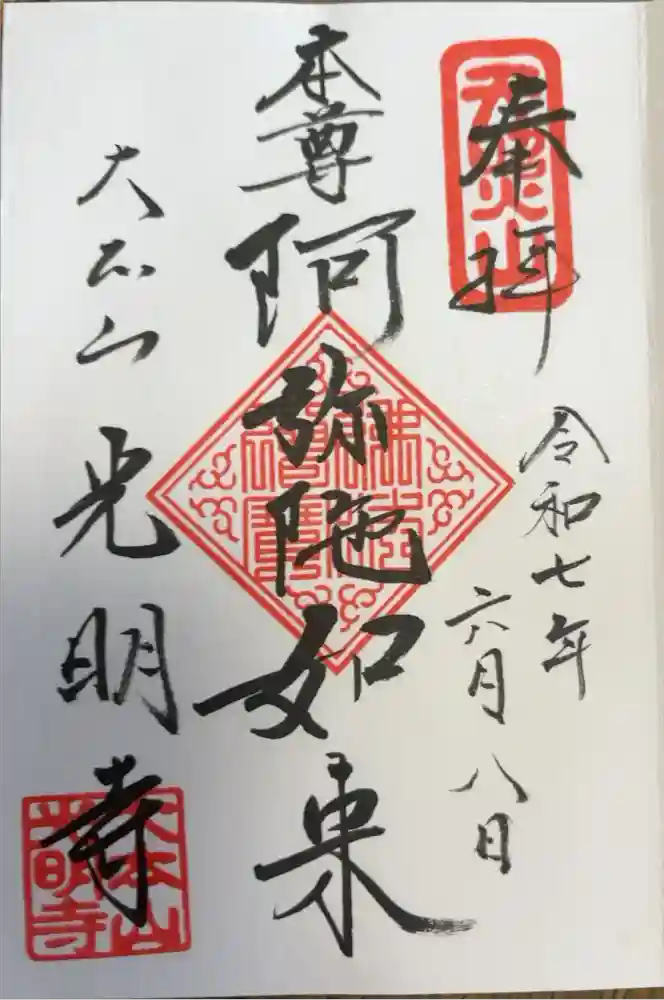 奉拝
天照山
令和七年
六月八日
本尊
阿弥陀如来
佛法
僧寶
大本山
光明寺
大本山
光明寺